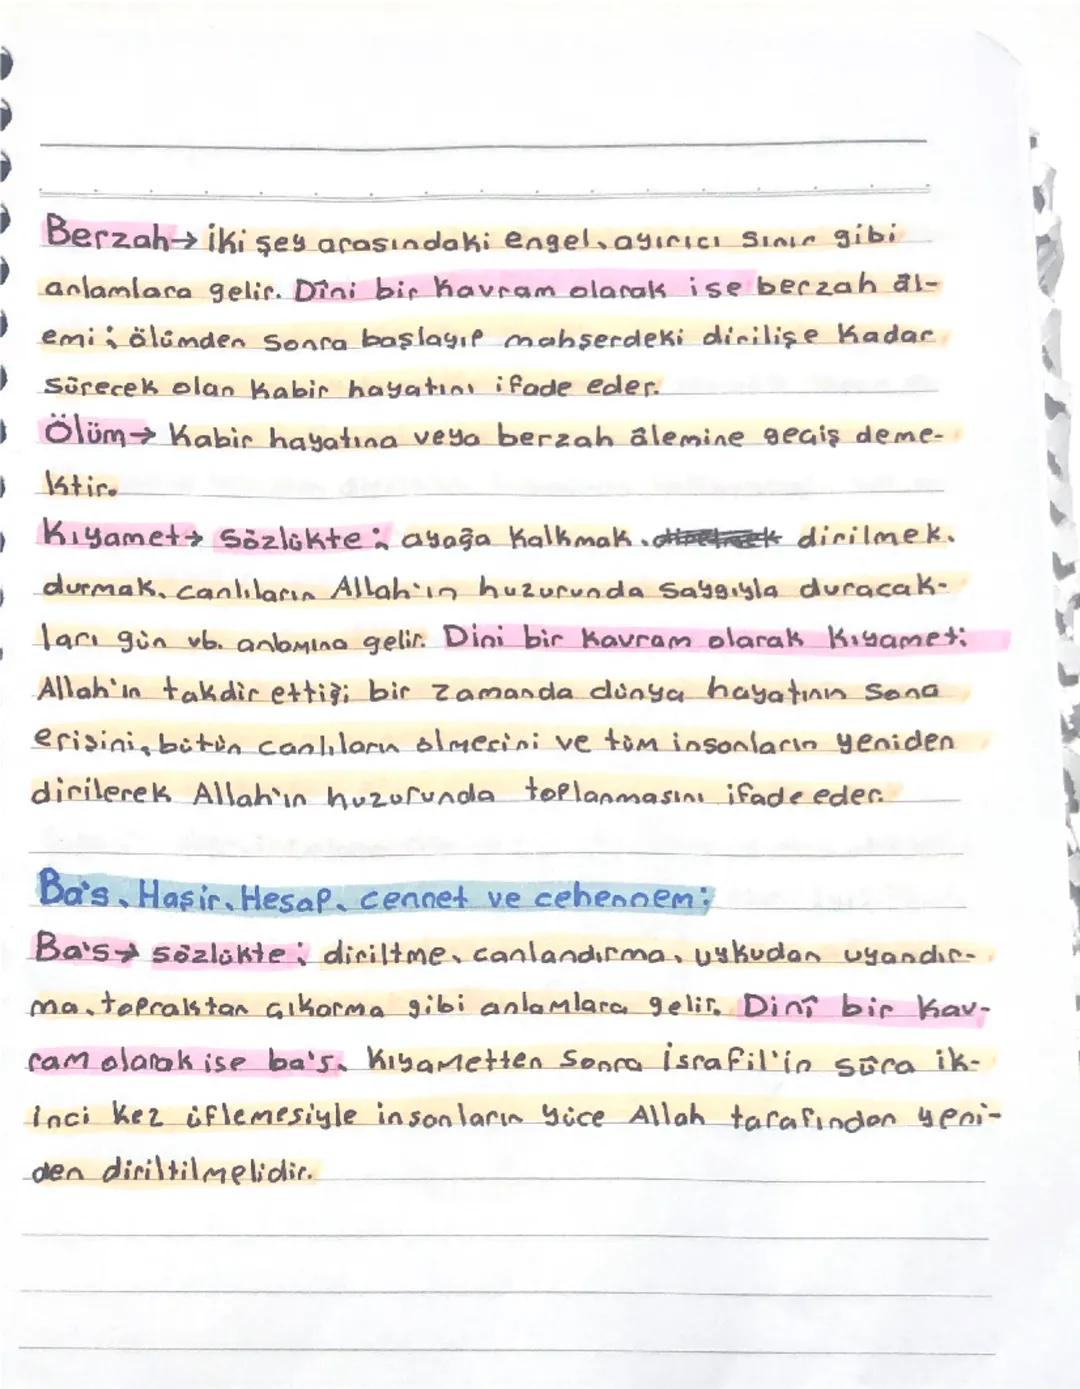 Berzah→ İki şey arasındaki engel, ayırıcı sınır gibi
anlamlara gelir. Dînî bir kavram olarak ise berzah âl-
emi; ölümden sonra başlayıp mahşerdeki dirilişe kadar
sürecek olan kabir hayatını ifade eder.
Ölüm→ Kabir hayatına veya berzah âlemine geçiş deme-
ktir.
Kıyamet→ Sözlükte; ayağa kalkmak, dirilmek,
durmak, canlıların Allah'ın huzurunda saygıyla duracak-
ları gün vb. anlamına gelir. Dini bir kavram olarak Kıyamet;
Allah'ın takdir ettiği bir zamanda dünya hayatının sona
erişini, bütün canlıların ölmesini ve tüm insanların yeniden
dirilerek Allah'ın huzurunda toplanmasını ifade eder.
Ba's, Haşir, Hesap, cennet ve cehennem;
Ba's→ sözlükte; diriltme, canlandırma, uykudan uyandır-
ma, topraktan çıkarma gibi anlamlara gelir. Dinî bir kav-
ram olarak ise ba's, kıyametten sonra İsrafil'in sûra ik-
inci kez üflemesiyle insanların yüce Allah tarafından yeni-
den diriltilmelidir.